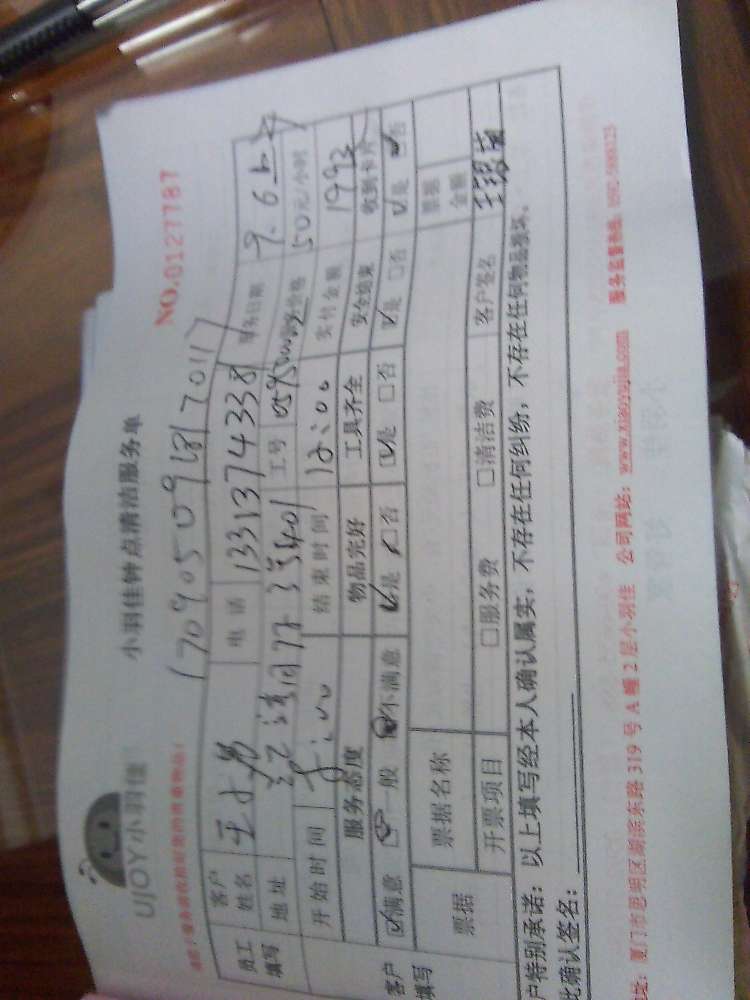 UJOY小羽佳
小羽佳钟点清洁服务单
NO.0127787
170905091817011
员工填写
客户姓名 王小 电话 13313743381 服务日期 9.6上午
地址 3号401 工号 价格 50元/小时
开始时间 8:00 结束时间 12:00 实付金额 199元
客户填写
服务态度 物品完好 工具齐全 安全结束 收到卡片
☑满意 □一般 □不满意 ☑是 □否 ☑是 □否 ☑是 □否 ☑是 □否
票据 票据名称 票据金额
开票项目 □服务费 □清洁费 客户签名
户特别承诺:以上填写经本人确认属实,不存在任何纠纷,不存在任何物品损坏。
此确认签名:
址:厦门市思明区湖滨东路319号A幢2层小羽佳 公司网站:www.xiaoyujia.com 服务监督热线: